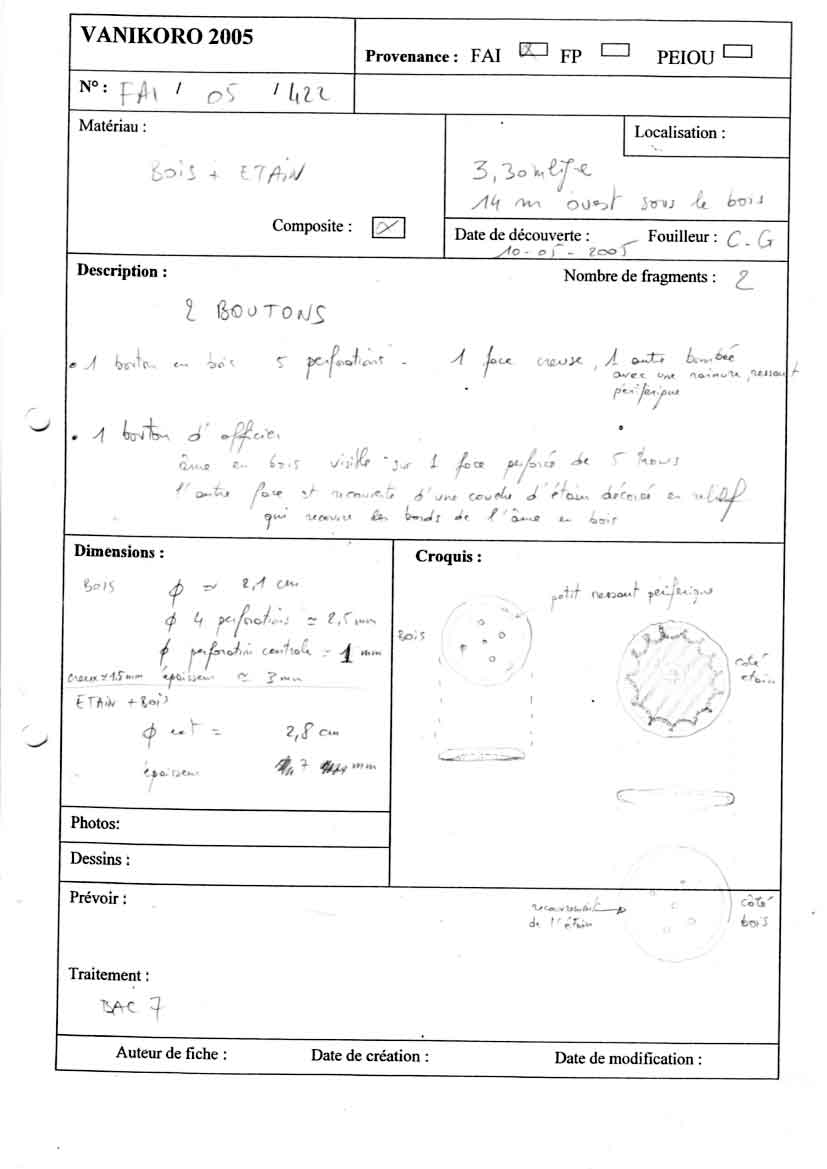 VANIKORO 2005
Provenance : FAI ☒ FP ☐ PEIOU ☐
N° : FAI / 05 / 422
Matériau :
BOIS + ETAIN
Composite : ☒
Localisation :
14 m ouest sous le bois
Date de découverte :
10-05-2005
Fouilleur : C.G
Description :
Nombre de fragments : 2
2 BOUTONS
• 1 bouton en bois 5 perforations - 1 face creuse, 1 autre bombée
avec une rainure, ressaut
périférique
• 1 bouton d'officier
âme en bois visible sur 1 face perforée de 5 trous
l'autre face est recouverte d'une couche d'étain décorée en relief
qui recouvre les bords de l'âme en bois
Dimensions :
BOIS ϕ ≃ 2,1 cm
ϕ 4 perforations ≃ 2,5 mm
ϕ perforation centrale ≃ 1 mm
creux ≃ 1.5 mm épaisseur ≃ 3 mm
ETAIN + BOIS
ϕ ext = 2,8 cm
épaisseur 7 mm
Croquis :
petit ressaut périferique
BOIS
coté
etain
Photos:
Dessins :
Prévoir :
recouvrement
de l'étain
côté
bois
Traitement :
BAC 7
Auteur de fiche :
Date de création :
Date de modification :